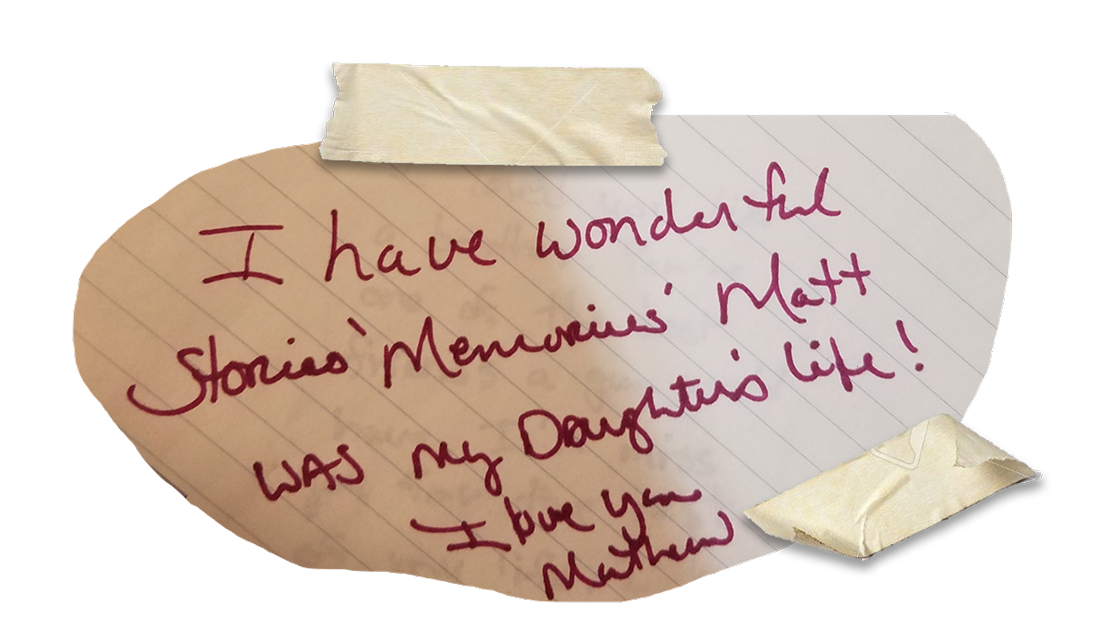 I have wonderful
Stories' Memories' Matt
WAS my Daughter's life!
I love you
Matthew